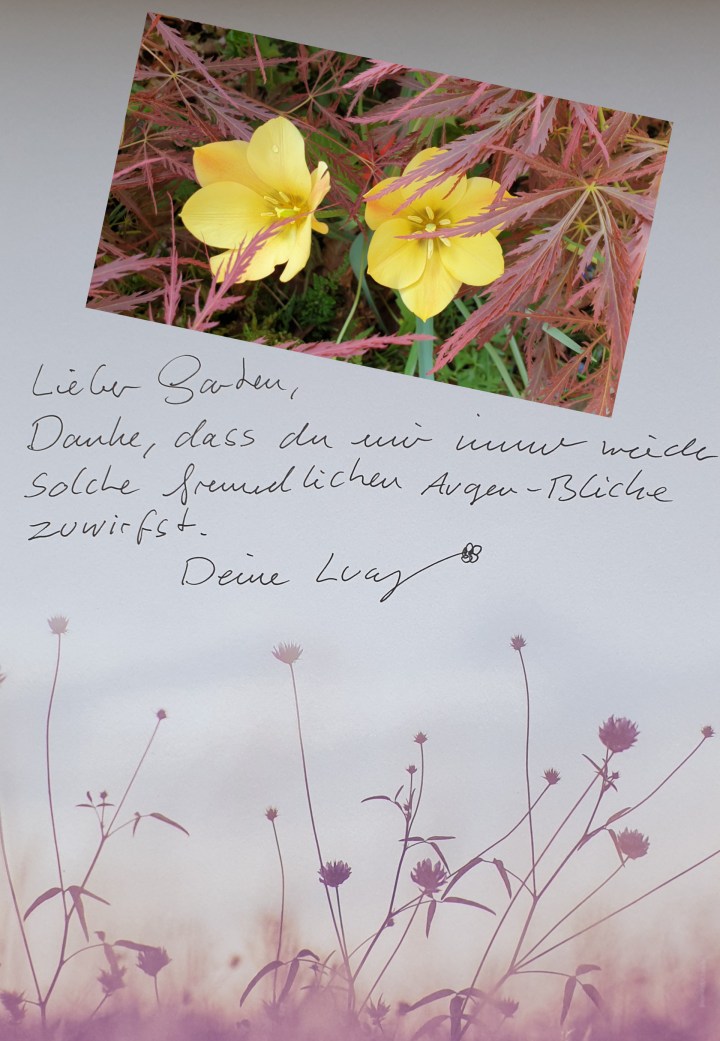 Lieber Garten,
Danke, dass du mir immer wieder
solche freundlichen Augen-Blicke
zuwirfst.
Deine Lucy